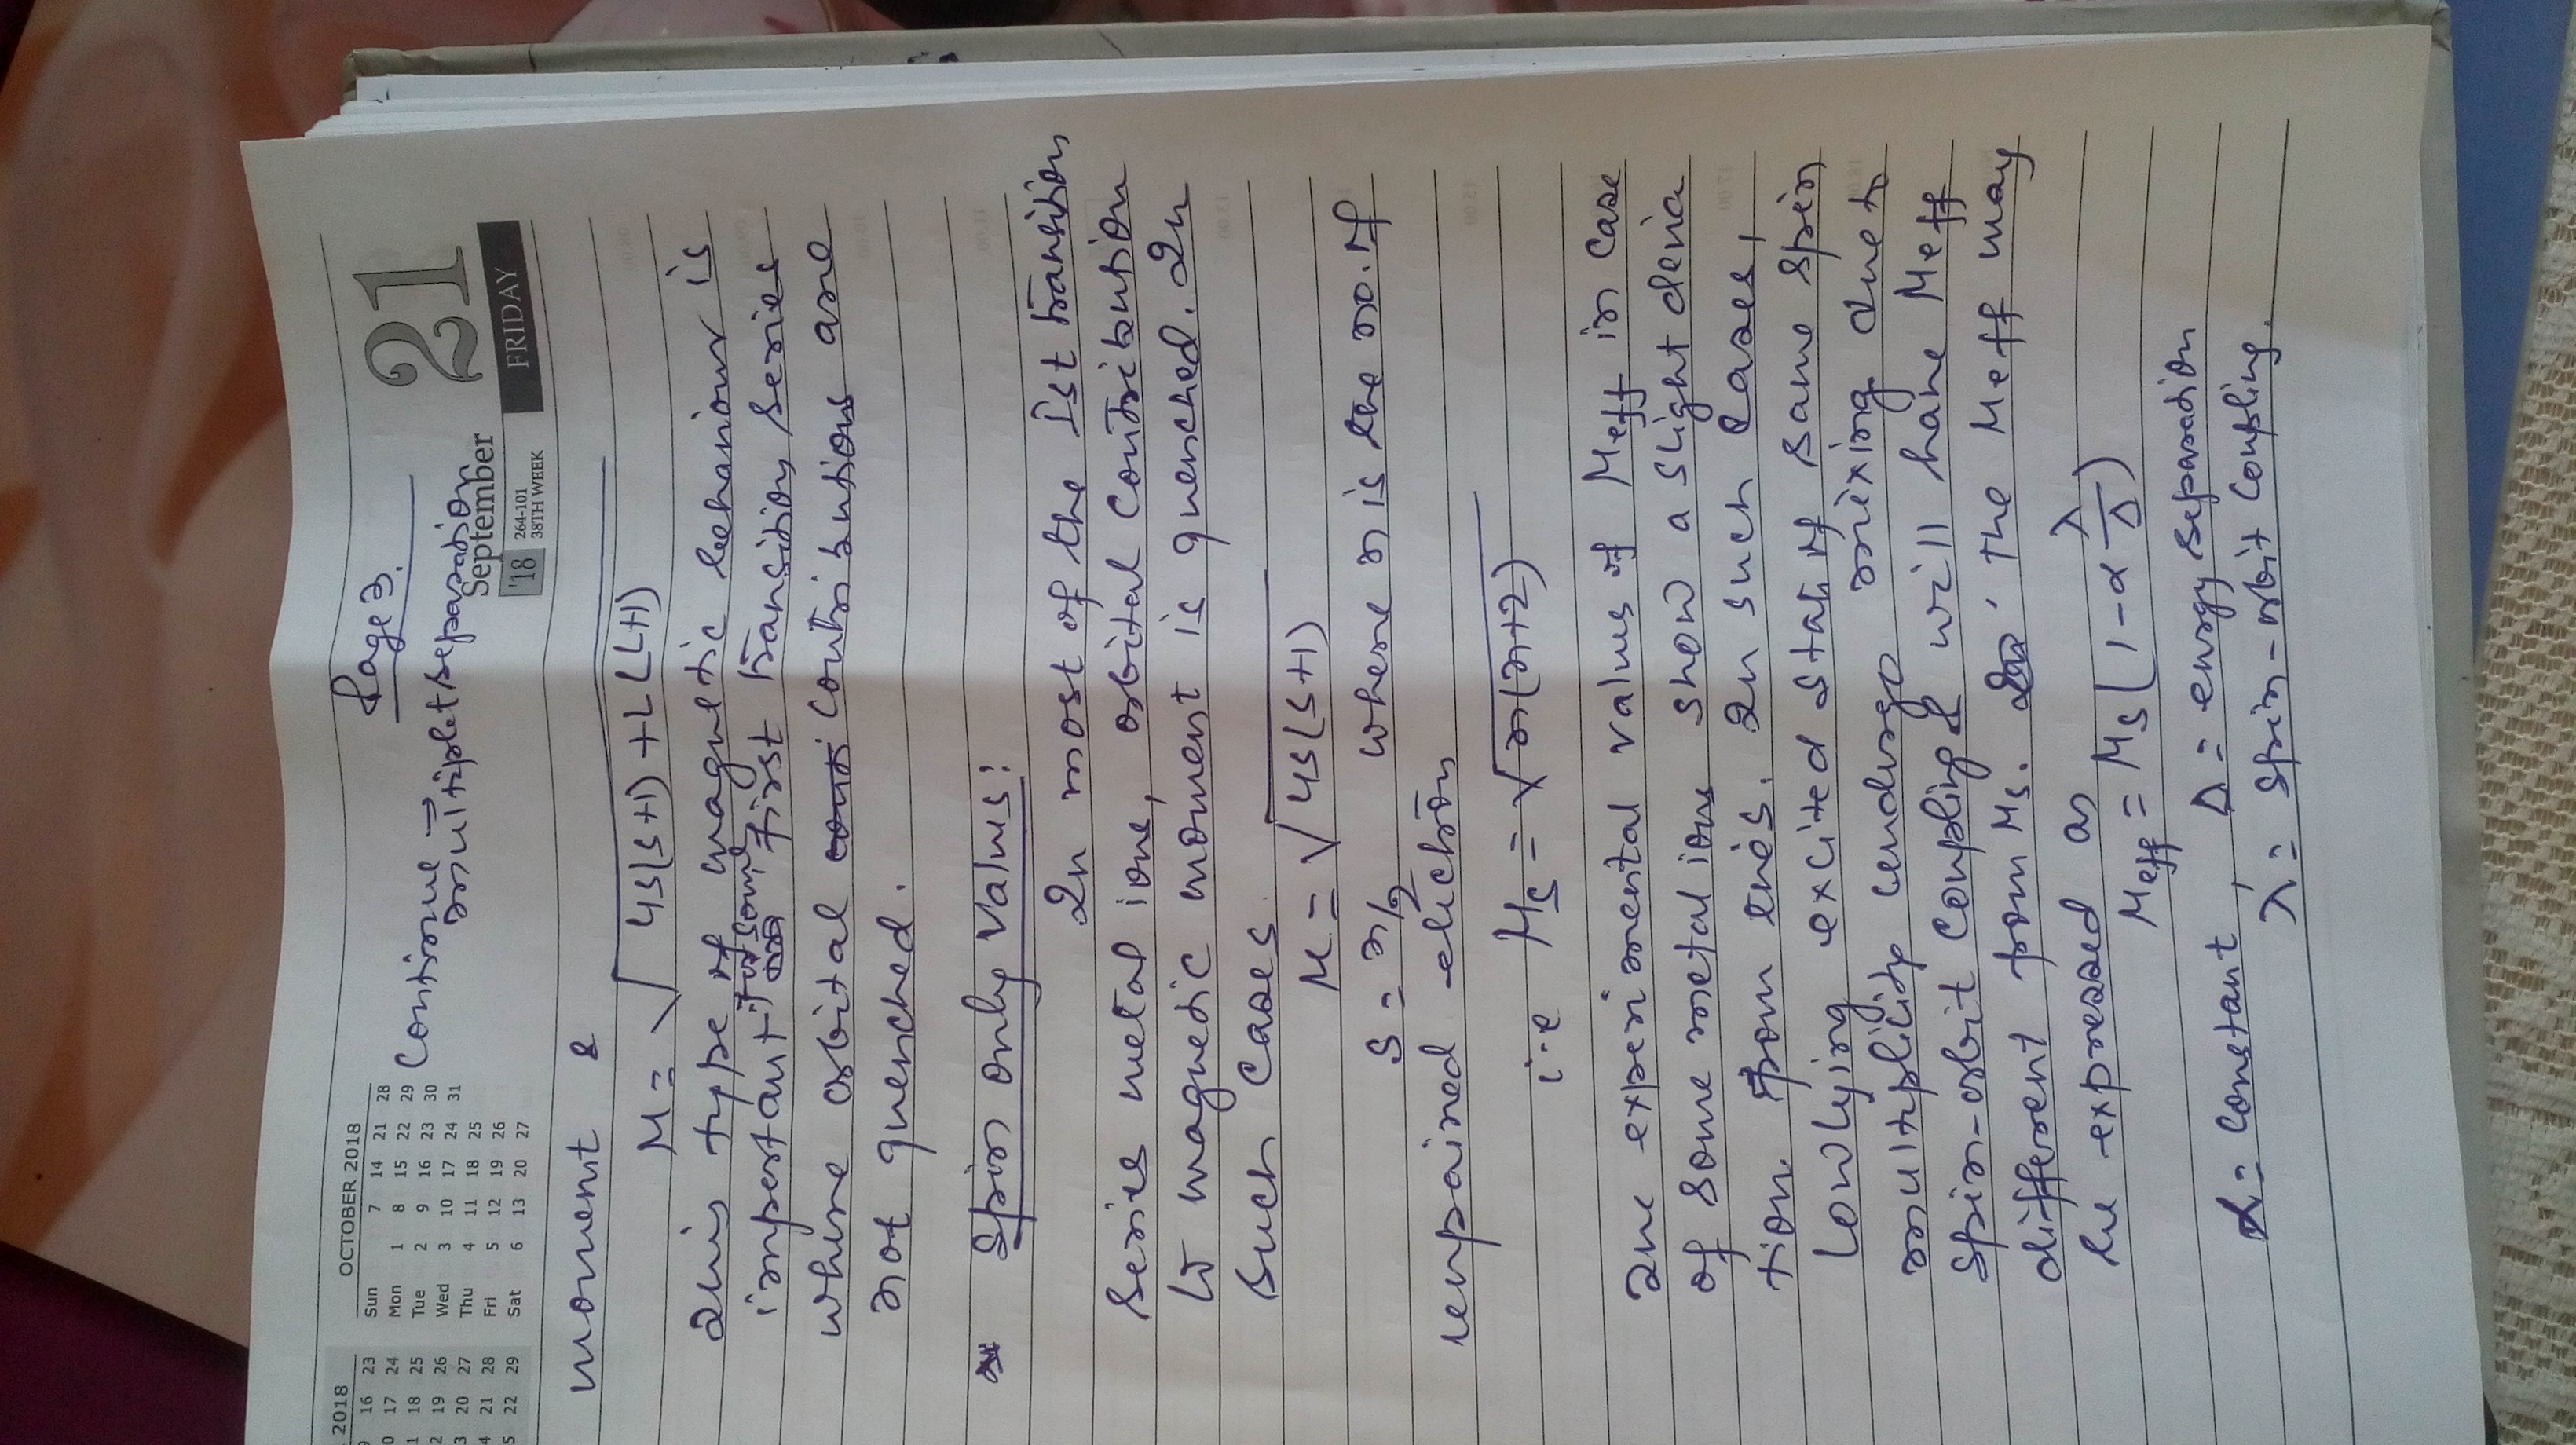 Page 3.
Continue →
multiplet separation
21
September
FRIDAY
'18
264-101
38TH WEEK
OCTOBER 2018
Sun 7 14 21 28
Mon 1 8 15 22 29
Tue 2 9 16 23 30
Wed 3 10 17 24 31
Thu 4 11 18 25
Fri 5 12 19 26
Sat 6 13 20 27
2018
16 23
17 24
18 25
19 26
20 27
21 28
22 29
moment &
μ = √4S(S+1) + L(L+1)
This type of magnetic behaviour is
important for some first transition series
where orbital contributions are
not quenched.
Spin only values:
In most of the Ist transition
series metal ions, orbital contribution
to magnetic moment is quenched. In
such cases
μ = √4S(S+1)
S = n/2 where n is the no. of
unpaired electron
i.e μs = √n(n+2)
The experimental values of μeff in case
of some metal ions show a slight devia
tion from this. In such cases,
lowlying excited state of same spin
multiplicity undergo mixing due to
spin-orbit coupling & will have μeff
different from μs. The μeff may
be expressed as
μeff = μs(1-α λ/Δ)
α = constant, Δ = energy separation
λ = spin-orbit coupling.